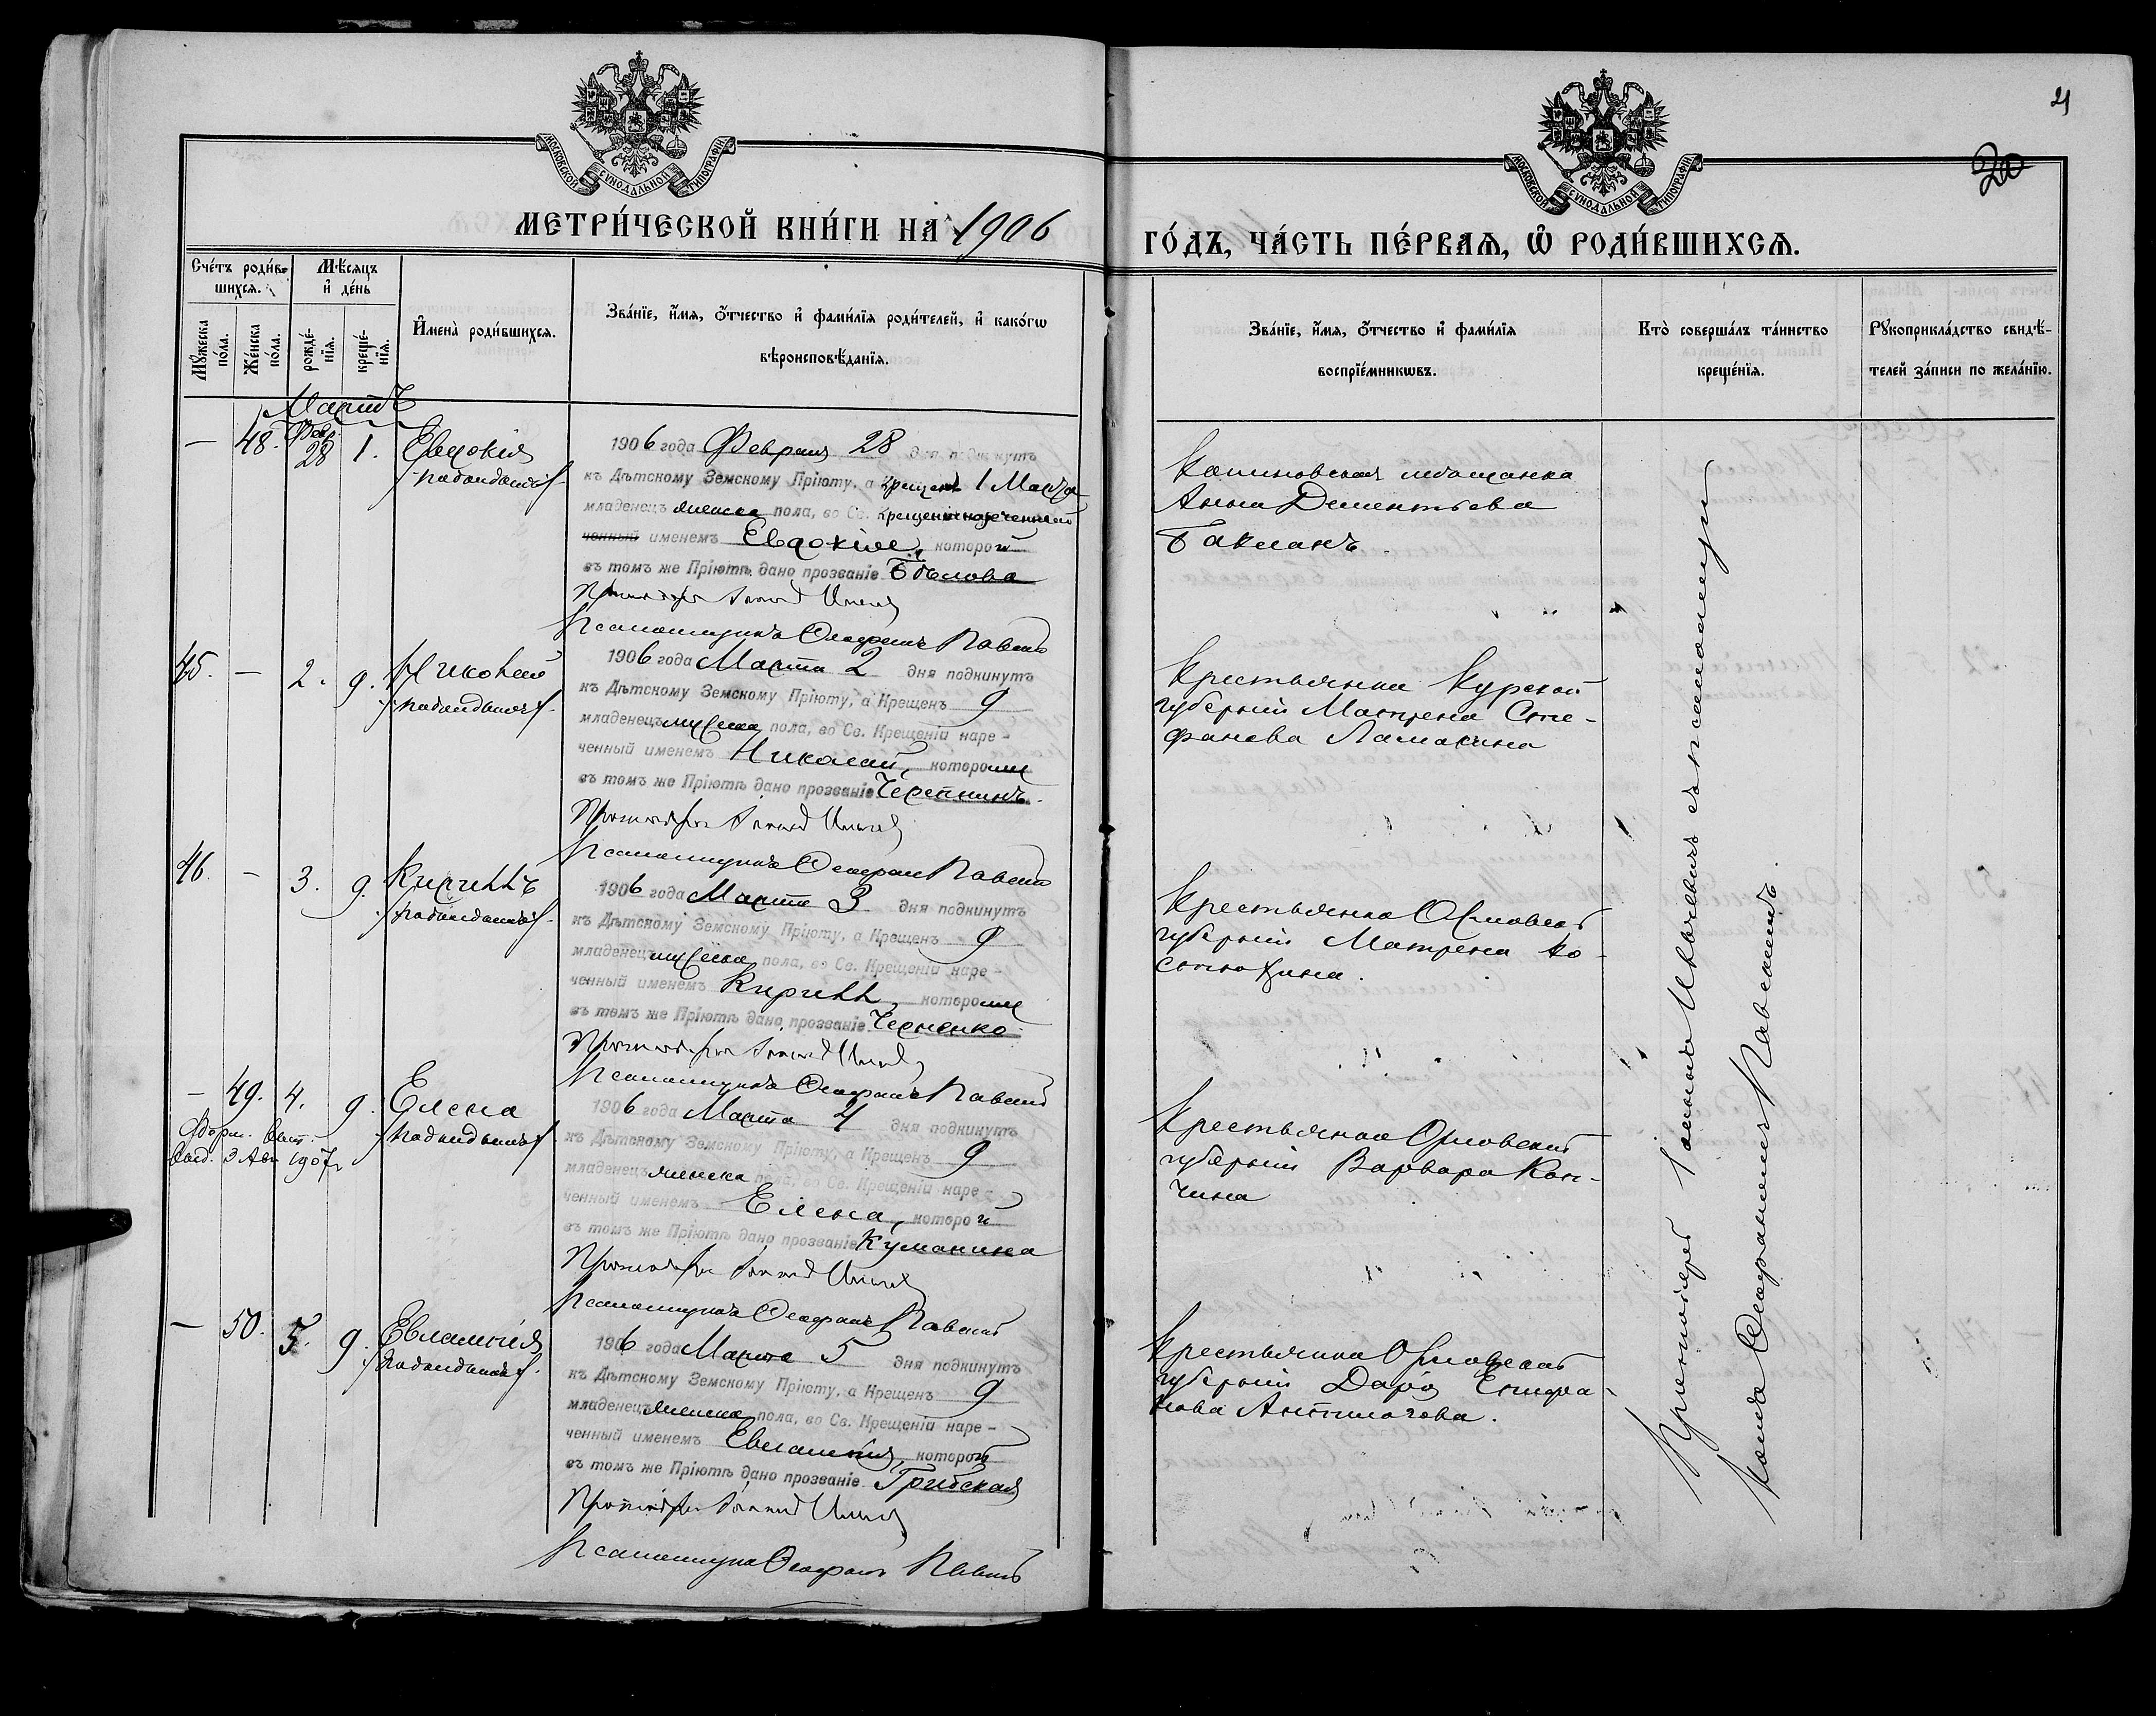 21
20
МОСКОВСКОЙ СѴНОДАЛЬНОЙ ТИПОГРАФІИ
МОСКОВСКОЙ СѴНОДАЛЬНОЙ ТИПОГРАФІИ
МЕТРИ́ЧЕСКОЙ КНИ́ГИ НА 1906
ГО́ДЪ, ЧА́СТЬ ПЕ́РВАЯ, Ѽ РОДИ́ВШИХСЯ.
Сче́тъ роди́в-
шихся.
Мѣ́сяцъ
и҆ де́нь
Мꙋ́жеска
по́ла.
Же́нска
по́ла.
рожде́-
нїя.
креще́-
нїя.
И҆мена̀ роди́вшихся.
Зва́нїе, и҆́мя, ѻ҆́тчество и҆ фами́лїя роди́телей, и҆ како́гѡ
вѣроисповѣ́данїя.
Зва́нїе, и҆́мя, ѻ҆́тчество и҆ фами́лїя
воспрїе́мникѡвъ.
Кто̀ соверша́лъ та́инство
креще́нїя.
Рꙋкоприкла́дство свидѣ́-
телей за́писи по жела́нїю.
Мартъ
— 48. Февр. 28 1. Евдокія
1906 года Февраля 28 дня подкинутъ
къ Дѣтскому Земскому Пріюту, а крещенъ 1 Марта
младенецъ женска пола, во Св. Крещеніи нареченный
ченный именемъ Евдокіи, которой
въ томъ же Пріютѣ дано прозваніе Бѣлова
Псаломщикъ Ѳеофанъ Павскій
мѣщанка
Анна Дементьева
Бакманъ.
45. — 2. 9. Николай
1906 года Марта 2 дня подкинутъ
къ Дѣтскому Земскому Пріюту, а Крещенъ 9
младенецъ мужска пола, во Св. Крещеніи наре-
ченный именемъ Николай, которому
въ томъ же Пріютѣ дано прозваніе Черепнинъ.
Псаломщикъ Ѳеофанъ Павскій
Крестьянка Курской
губерніи Матрена Сте-
фанова Ламакина
46. — 3. 9. Кириллъ
1906 года Марта 3 дня подкинутъ
къ Дѣтскому Земскому Пріюту, а Крещенъ 9
младенецъ мужска пола, во Св. Крещеніи наре-
ченный именемъ Кириллъ, которому
въ томъ же Пріютѣ дано прозваніе Черненко
Псаломщикъ Ѳеофанъ Павскій
Крестьянка Орловской
губерніи Матрена Ко-
стюхина.
— 49. 4. 9. Елена
3 Авг 1907 г.
1906 года Марта 4 дня подкинутъ
къ Дѣтскому Земскому Пріюту, а Крещенъ 9
младенецъ женска пола, во Св. Крещеніи наре-
ченный именемъ Елена, которой
въ томъ же Пріютѣ дано прозваніе Куманина
Псаломщикъ Ѳеофанъ Павскій
Крестьянка Орловской
губерніи Варвара Кон-
чина
— 50. 5. 9. Евлампія
1906 года Марта 5 дня подкинутъ
къ Дѣтскому Земскому Пріюту, а Крещенъ 9
младенецъ женска пола, во Св. Крещеніи наре-
ченный именемъ Евлампія, которой
въ томъ же Пріютѣ дано прозваніе Грибская
Псаломщикъ Ѳеофанъ Павскій
Крестьянка Орловской
губерніи Дарія Епифа-
нова Антипохова.
Протоіерей Іоаннъ Ильичевъ съ псаломщи-
комъ Ѳеофаномъ Павскимъ.